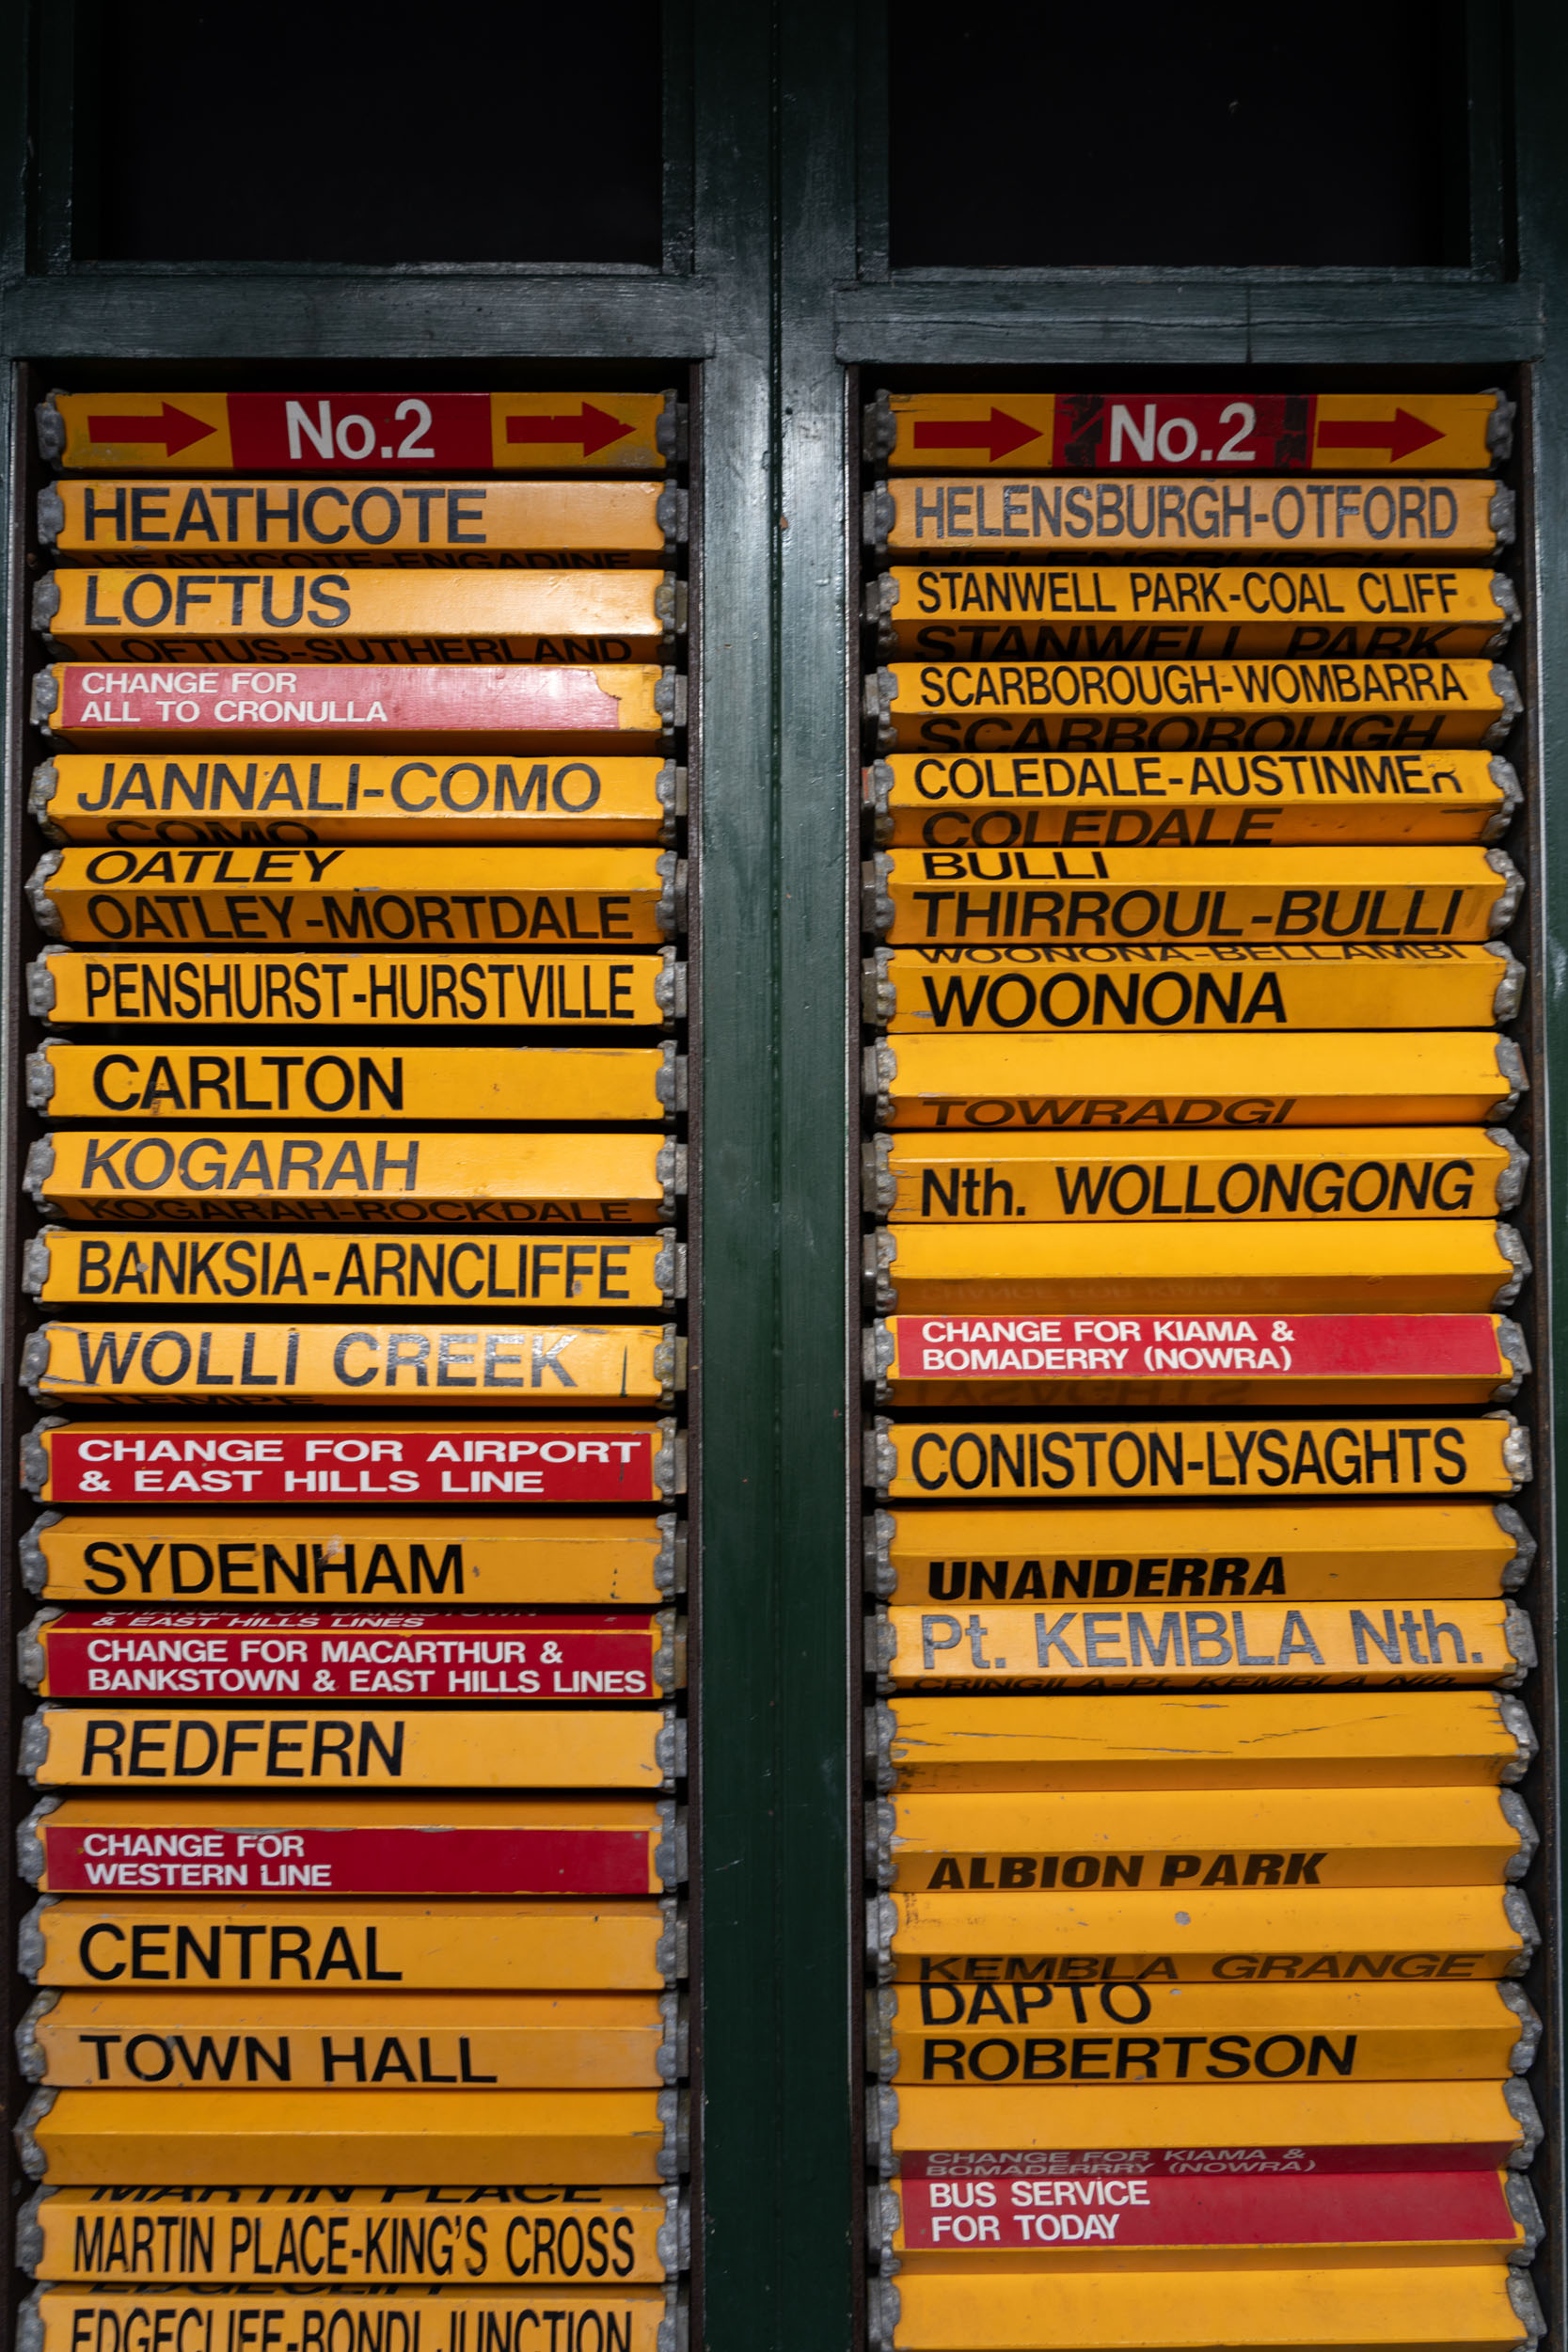 No.2
HEATHCOTE
HEATHCOTE-ENGADINE
LOFTUS
LOFTUS-SUTHERLAND
CHANGE FOR
ALL TO CRONULLA
JANNALI-COMO
COMO
OATLEY
OATLEY-MORTDALE
PENSHURST-HURSTVILLE
CARLTON
KOGARAH
KOGARAH-ROCKDALE
BANKSIA-ARNCLIFFE
WOLLI CREEK
TEMPE
CHANGE FOR AIRPORT
& EAST HILLS LINE
SYDENHAM
CHANGE FOR BANKSTOWN
& EAST HILLS LINES
CHANGE FOR MACARTHUR &
BANKSTOWN & EAST HILLS LINES
REDFERN
CHANGE FOR
WESTERN LINE
CENTRAL
TOWN HALL
MARTIN PLACE
MARTIN PLACE-KING'S CROSS
EDGECLIFF
EDGECLIFF-BONDI JUNCTION
No.2
HELENSBURGH-OTFORD
HELENSBURGH
STANWELL PARK-COAL CLIFF
STANWELL PARK
SCARBOROUGH-WOMBARRA
SCARBOROUGH
COLEDALE-AUSTINMER
COLEDALE
BULLI
THIRROUL-BULLI
WOONONA-BELLAMBI
WOONONA
TOWRADGI
Nth. WOLLONGONG
CHANGE FOR KIAMA &
CHANGE FOR KIAMA &
BOMADERRY (NOWRA)
LYSAGHTS
CONISTON-LYSAGHTS
UNANDERRA
Pt. KEMBLA Nth.
CRINGILA-Pt. KEMBLA Nth.
ALBION PARK
KEMBLA GRANGE
DAPTO
ROBERTSON
CHANGE FOR KIAMA &
BOMADERRRY (NOWRA)
BUS SERVICE
FOR TODAY